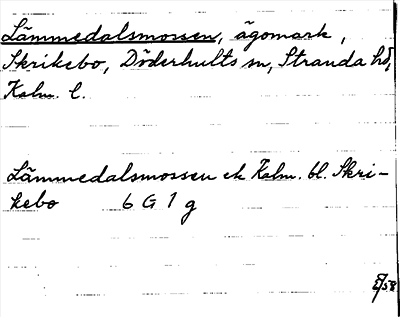 Lämmedalsmossen, ägomark,
Skrikebo, Döderhults sn, Stranda hd,
Kalm. l.
Lämmedalsmossen ek Kalm. bl. Skri-
kebo 6 G 1 g